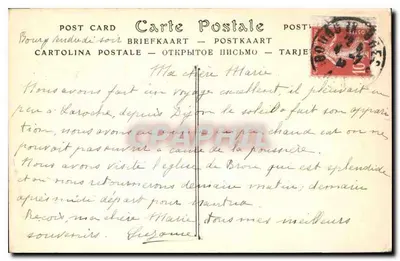 POST CARD Carte Postale POST
Bourg vendredi soir BRIEFKAART — POSTKAART
CARTOLINA POSTALE — ОТКРЫТОЕ ПИСЬМО — TARJE
Ma chère Marie
Nous avons fait un voyage excellent, il pleuvait un
peu à Laroche, depuis Dijon le soleil a fait son appari
tion, nous avons chaud est on ne
pouvait pas ouvrir de la poussière.
Nous avons visité l'église de Brou qui est splendide
et où nous retournerons demain matin; demain
après midi départ pour Nantua
Reçois, ma chère Marie, tous mes meilleurs
souvenirs. Suzanne
CARTE
10